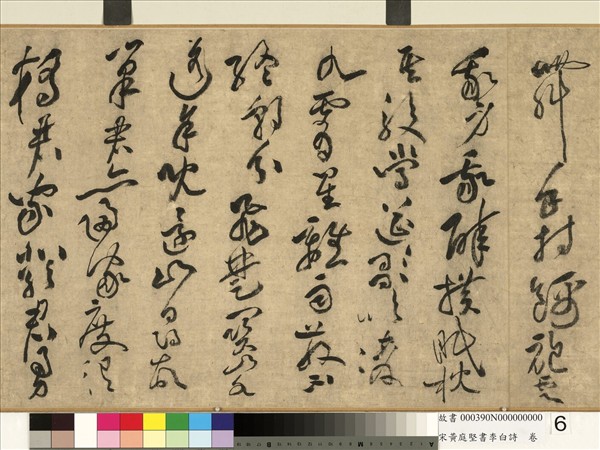 舞手持錦袍覆
我身我醉橫眠枕
其股當筵意氣凌
九霄星離雨散不
終朝分飛楚關山水
遙余既還山尋故
巢君亦歸家度渭
橋君家嚴君勇
故書 000390N000000000
宋黃庭堅書李白詩 卷
6